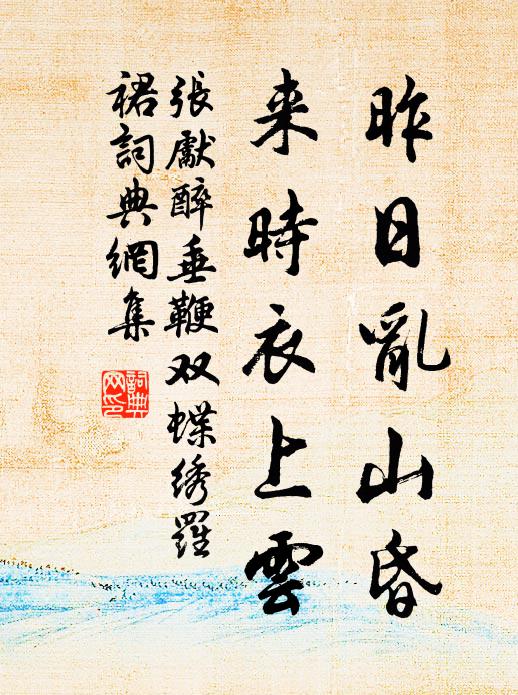 昨日亂山昏
来時衣上雲
張獻醉垂鞭双蝶绣羅
裙詞典網集
詞典
网印